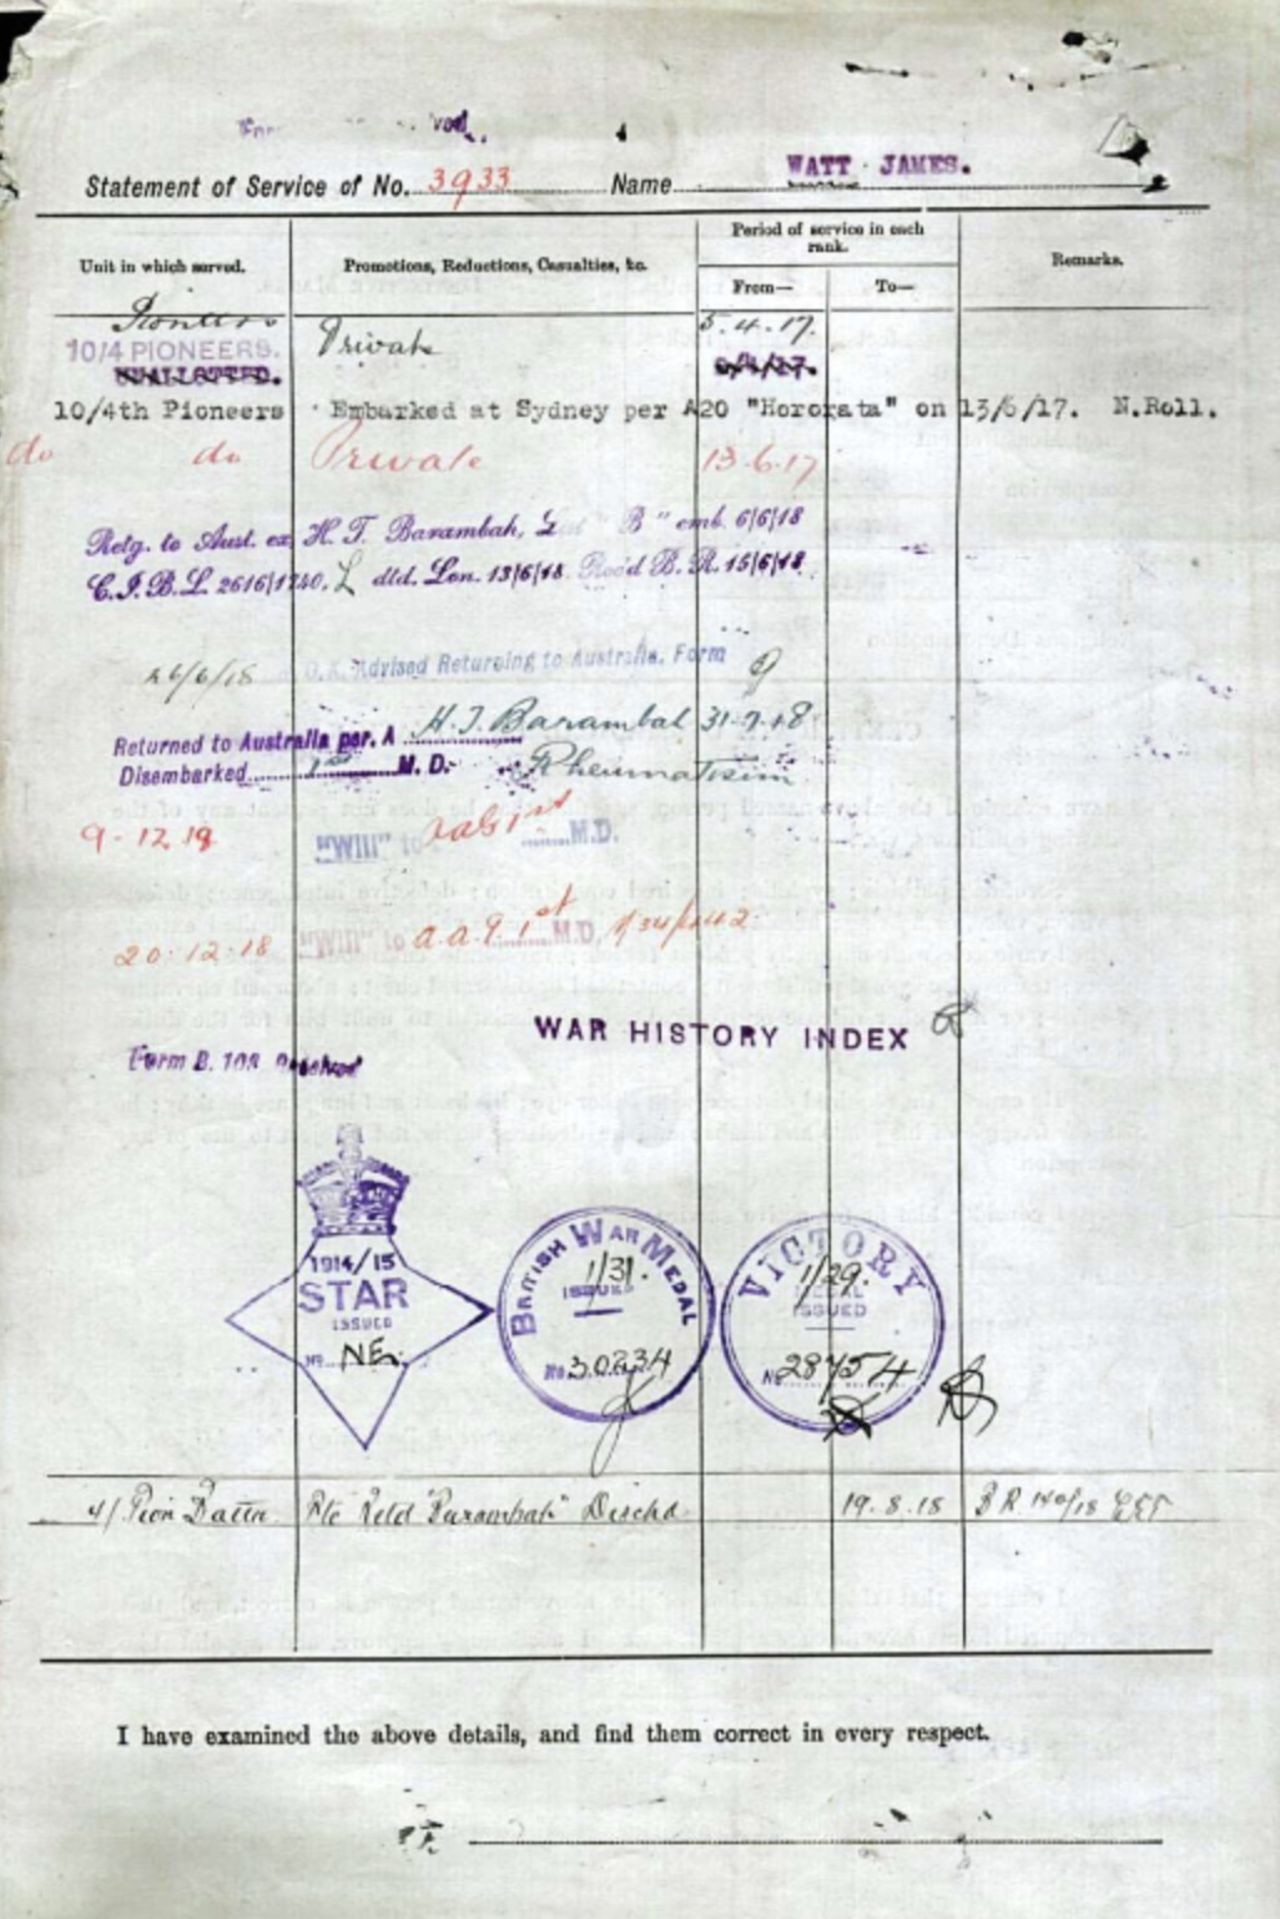 Statement of Service of No. 3933 Name WATT JAMES.
Unit in which served. Promotions, Reductions, Casualties, &c. Period of service in each rank. From— To— Remarks.
Pioneers Private 5.4.17.
10/4 PIONEERS.
UNALLOTTED.
10/4th Pioneers Embarked at Sydney per A20 "Hororata" on 13/6/17. N.Roll.
do do Private 13.6.17
Retg. to Aust. ex H. T. Barambah, "B" emb. 6/6/18
C.I.B.L. 2616/1740. L dtd. Lon. 13/6/18. Rec'd B. R. 15/6/18.
26/6/18 Advised Returning to Australia. Form
Returned to Australia per. A H.T. Barambah 31-7-18
Disembarked 1st M. D. Rheumatism
9-12.18 "Will" to 1st M.D.
20.12.18 "Will" to a.a.g. 1st M.D.
WAR HISTORY INDEX
Form B. 103 Received
1914/15 STAR ISSUED No. NE.
BRITISH WAR MEDAL 1/31. ISSUED No. 30234
VICTORY 1/29. MEDAL ISSUED No. 28454
4/ Pion Battn Pte Retd "Barambah" Dischd 19.8.18 B.R. 140/18
I have examined the above details, and find them correct in every respect.